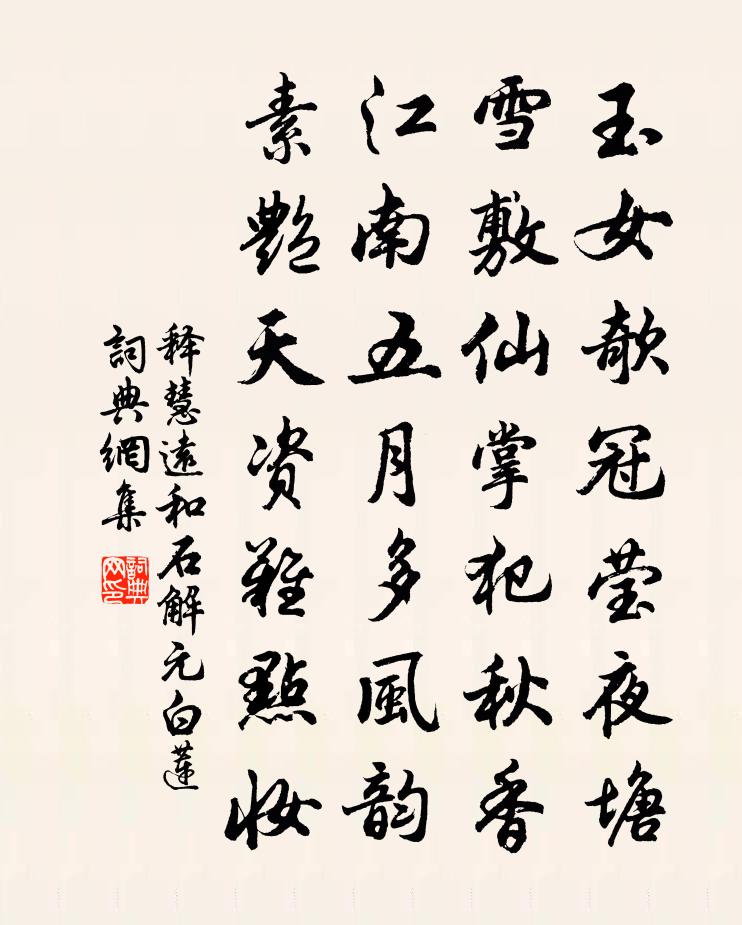 玉女欹冠莹夜塘
雪敷仙掌犯秋香
江南五月多風韵
素艶天资難點妆
释慧遠和石解元白蓮
詞典網集
詞典网印